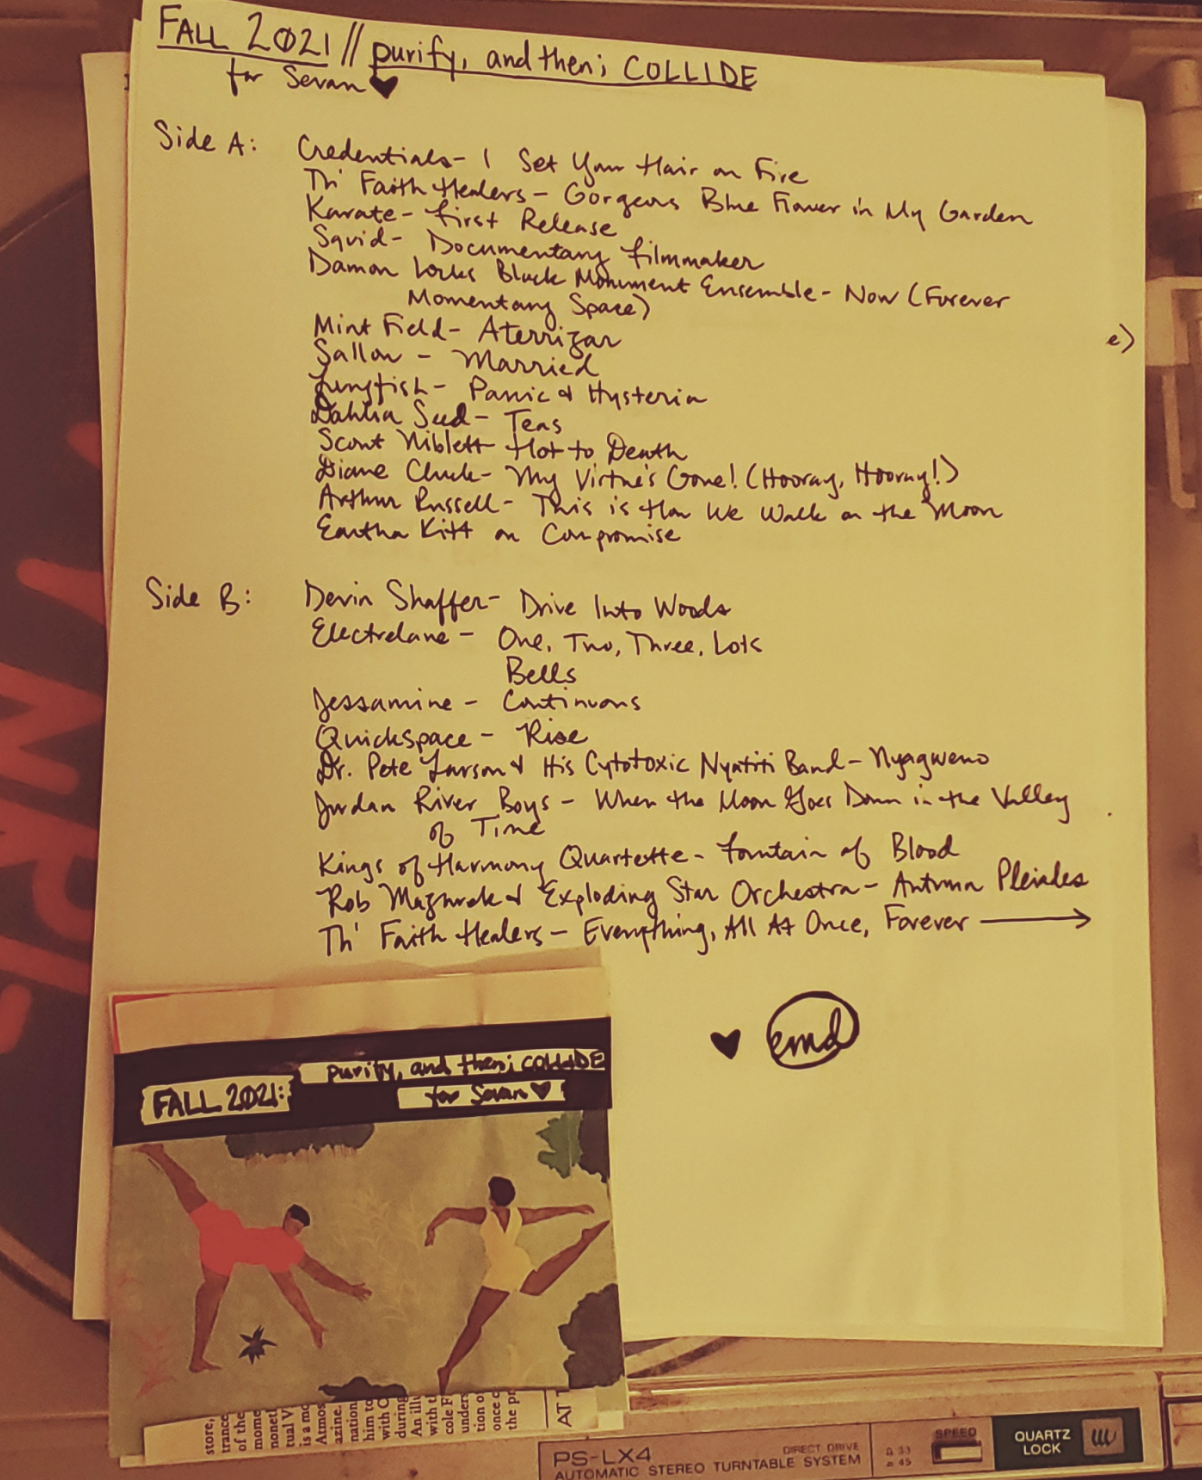 FALL 2021 // purify, and then; COLLIDE
for Sevan ♥
Side A:
Credentials - I Set Your Hair on Fire
Th' Faith Healers - Gorgeous Blue Flower in My Garden
Karate - First Release
Squid - Documentary Filmmaker
Damon Locks Black Monument Ensemble - Now (Forever
Momentary Space)
Mint Field - Aterrizar
Sallow - Married
Lungfish - Panic & Hysteria
Dahlia Seed - Teas
Scout Niblett - Hot to Death
Diane Cluck - My Virtue's Gone! (Hooray, Hooray!)
Arthur Russell - This is How We Walk on the Moon
Eartha Kitt on Compromise
e)
Side B:
Devin Shaffer - Drive Into Woods
Electrelane - One, Two, Three, Lots
Bells
Jessamine - Continuous
Quickspace - Rise
Dr. Pete Larson & His Cytotoxic Nyatiti Band - Nyagweno
Jordan River Boys - When the Moon Goes Down in the Valley
of Time
Kings of Harmony Quartette - Fountain of Blood
Rob Mazurek & Exploding Star Orchestra - Autumn Pleiades
Th' Faith Healers - Everything, All At Once, Forever →
♥ emd
purify, and then; COLLIDE
FALL 2021:
for Sevan ♥
store,
trance
of the
mome
moneti
tual V
is a mo
Atmos
azine.
nation
him to
with C
during
An illu
with t
cole F
unders
tion o
once c
the pr
AT T
PS-LX4
DIRECT DRIVE
AUTOMATIC STEREO TURNTABLE SYSTEM
33
45
SPEED
QUARTZ
LOCK